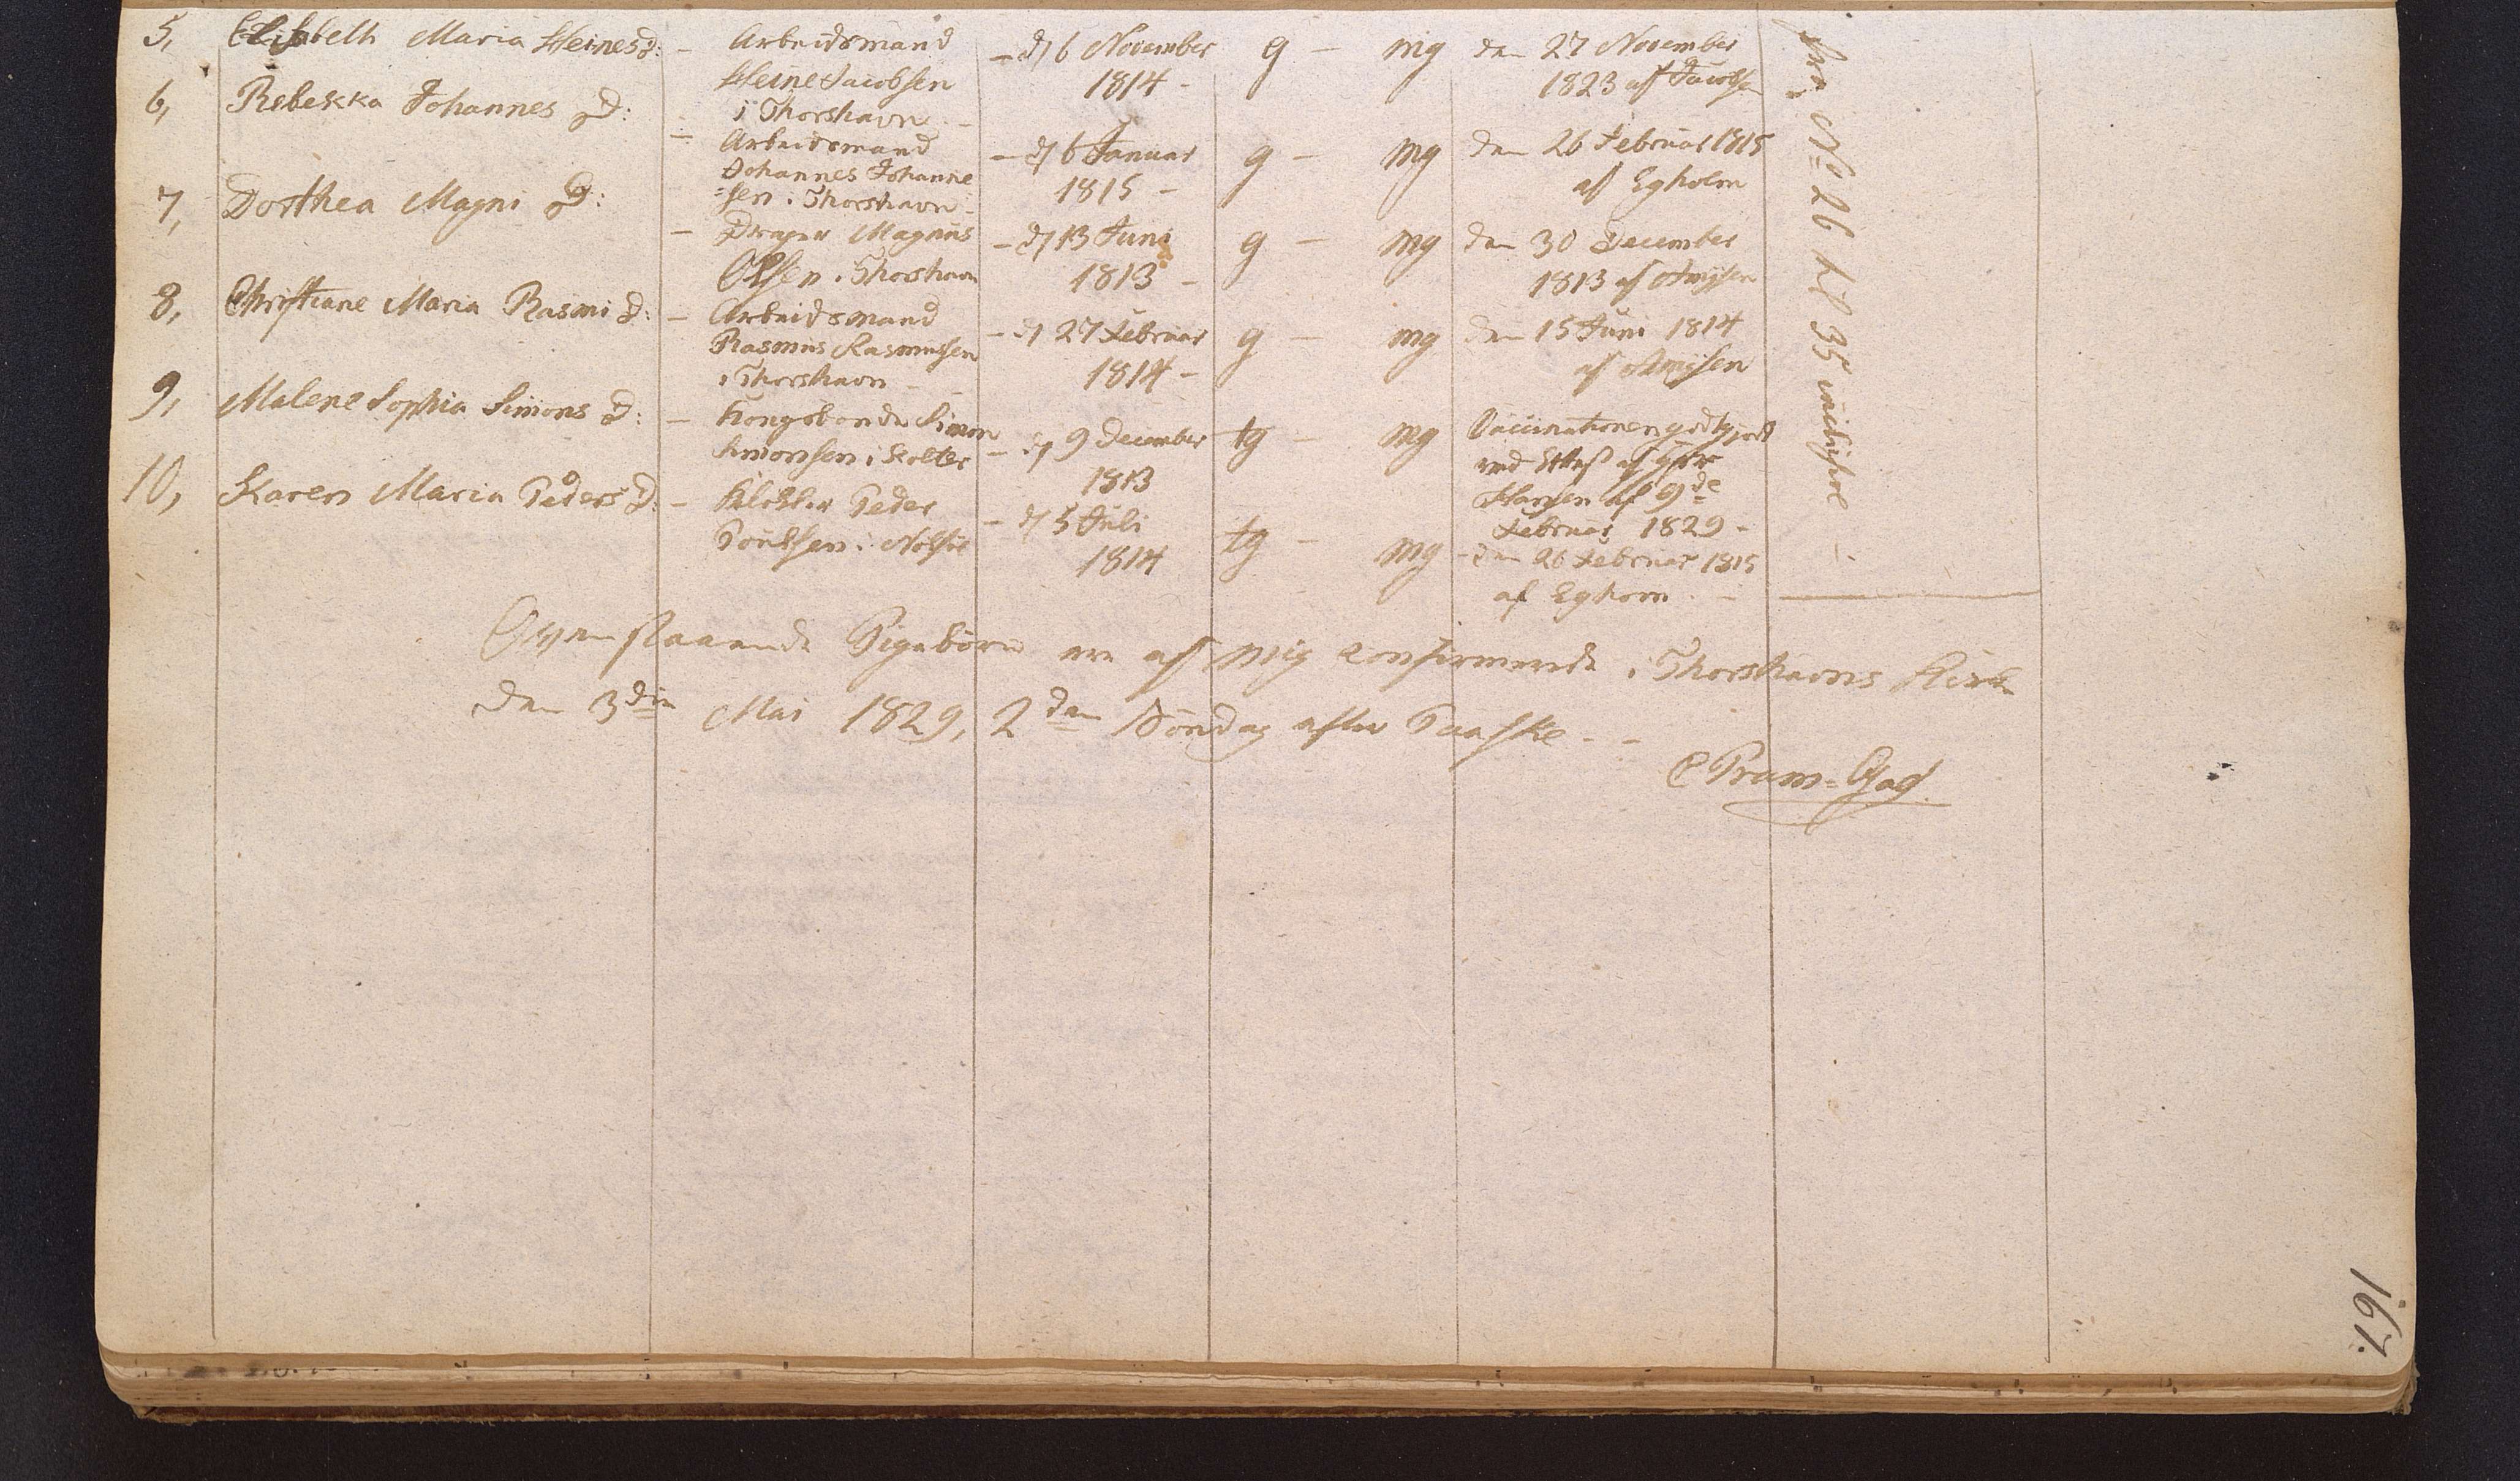 5, Elisabeth Maria Heines D: - Arbeidsmand - d 6 November g - mg den 27 November
Heine Jacobsen 1814 - 1823 af Jacobsen
i Thorshavn -
6, Rebekka Johannes D: - Arbeidsmand - d 6 Januar g - mg den 26 Februar 1815
Johannes Johanne 1815 - af Egholm
=sen i Thorshavn -
7, Dorthea Magni D: - Dreyer Magnus - d 13 Juni g - mg den 30 December
Olsen i Thorshavn 1813 - 1813 af
8, Christiane Maria Rasmi D: - Arbeidsmand - d 27 Februar g - mg den 15 Juni 1814
Rasmus Rasmussen 1814 - af
i Thorshavn -
9, Malene Sophia Simons D: - Kongsbonde Simon - d 9 December tg - mg Vaccinationen godtgjort
Simonsen i Kolter 1813 ved Attest af
Hansen af 9de
Februar 1829 -
10, Karen Maria Peders D: - Klokker Peder - d 5 Juli tg - mg - den 26 Februar 1815
Poulsen i Nolsöe 1814 af Eghom -
fra No 26 til 35 inclusive -
Ovenstaaende Pigebörn ere af mig confirmerede i Thorshavns Kirke
den 3die Mai 1829, 2den Söndag efter Paaske - -
C Pram-Gad
167.